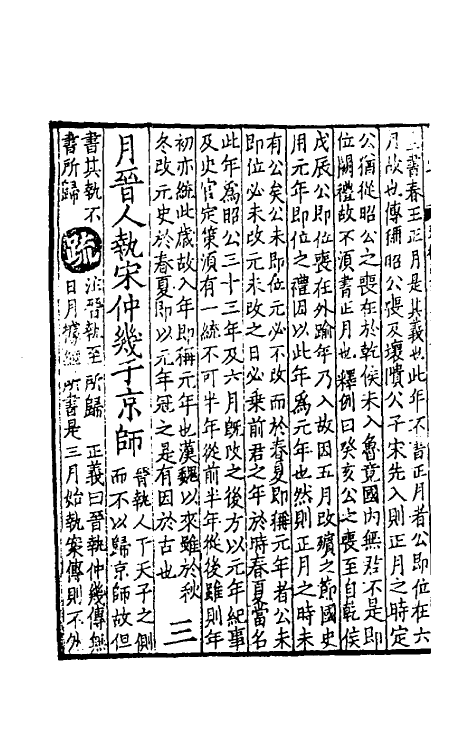 王書春王正月是其義也此年不書正月者公即位在六
月故也傳稱昭公喪及壞隤公子宋先入則正月之時定
公猶從昭公之喪在於乾侯未入魯竟國内無君不是即
位闕禮故不須書正月也釋例曰癸亥公之喪至自乾侯
戊辰公即位喪在外踰年乃入故因五月改殯之節國史
用元年即位之禮因以此年爲元年也然則正月之時未
有公矣公未即位元必不改而於春夏即稱元年者公未
即位必未改元未改之日必乗前君之年於時春夏當名
此年爲昭公三十三年及六月旣改之後方以元年紀事
及史官定策須有一統不可半年從前半年從後雖則年
初亦統此歲故入年即稱元年也漢魏以來雖於秋
冬改元史於春夏即以元年冠之是有因於古也
三
月晉人執宋仲幾于京師
晉執人于天子之側
而不以歸京師故但
書其執不
書所歸
疏
注晉執至所歸 正義曰晉執仲幾傳無
日月據經所書是三月始執案傳則不